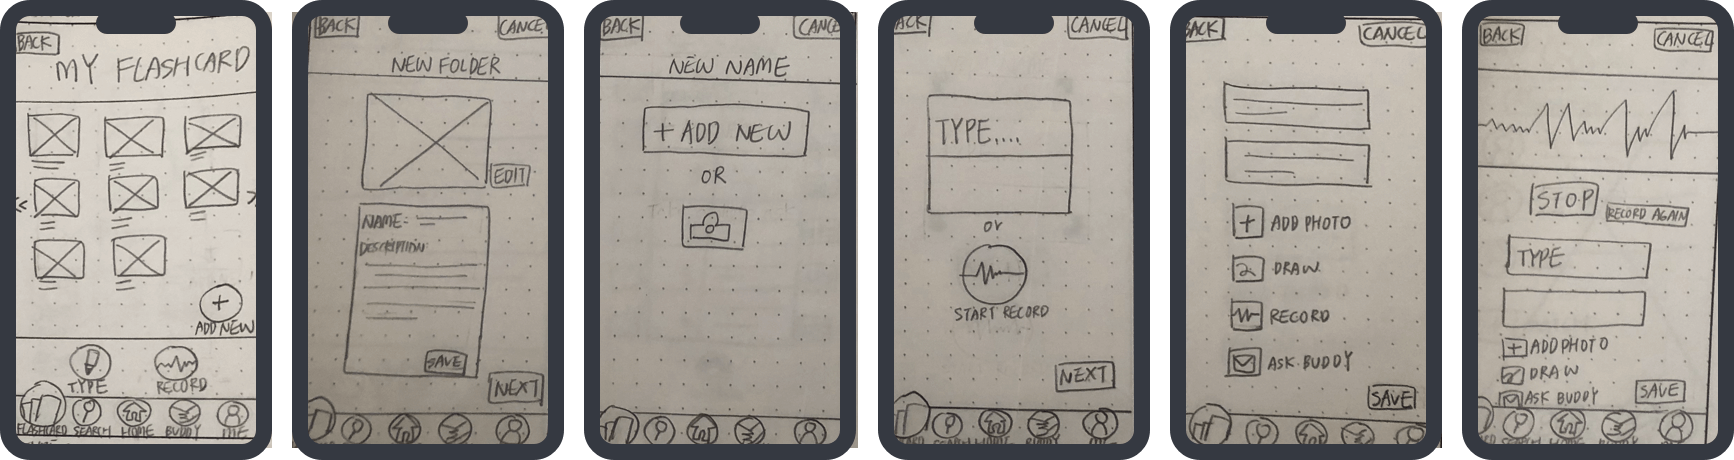 BACK
MY FLASHCARD
+
ADD NEW
TYPE
RECORD
FLASHCARD SEARCH HOME BUDDY ME
BACK
CANCEL
NEW FOLDER
EDIT
NAME:
DESCRIPTION
SAVE
NEXT
BACK
CANCE
NEW NAME
+ ADD NEW
OR
ACK
CANCEL
TYPE....
or
START RECORD
NEXT
BACK
CANCEL
+ ADD PHOTO
DRAW
RECORD
ASK BUDDY
SAVE
BACK
CANCEL
STOP
RECORD AGAIN
TYPE
+ ADD PHOTO
DRAW
ASK BUDDY
SAVE